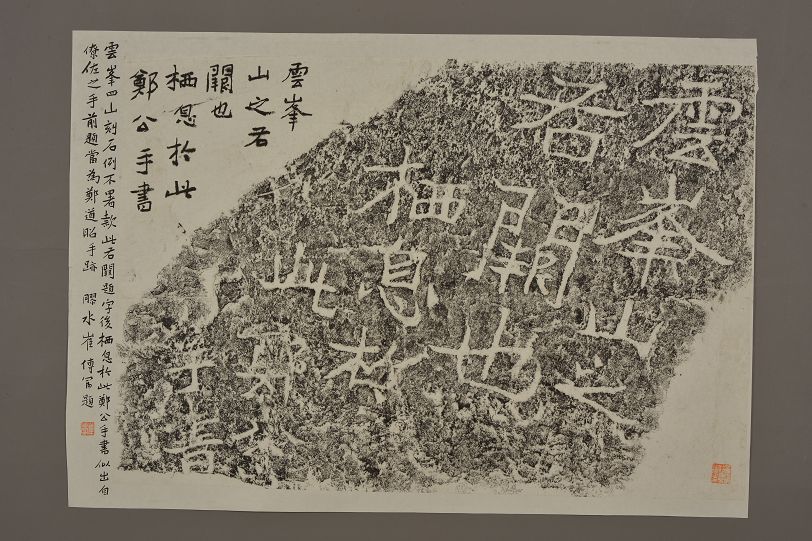 雲峯山之
右闕也
栖息於
此鄭公
之手書
雲峯
山之右
闕也
栖息於此
鄭公手書
雲峯四山刻石例不署款此右闕題字後栖息於此鄭公手書似出自
僚佐之手前題當為鄭道昭手跡 膠水崔題